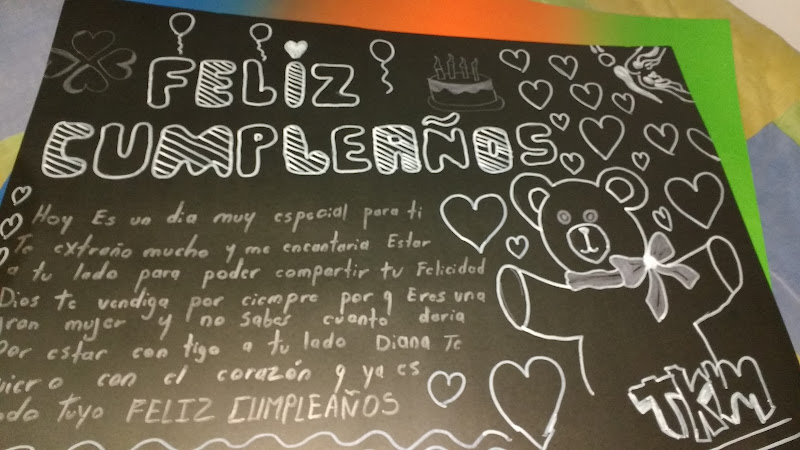 FELIZ
CUMPLEAÑOS
Hoy Es un dia muy especial para ti
Te extraño mucho y me encantaria Estar
a tu lado para poder compartir tu Felicidad
Dios te vendiga por ciempre por q Eres una
gran mujer y no Sabes cuanto daria
Por estar con tigo a tu lado Diana Te
uier o con el corazón q ya es
odo Tuyo FELIZ CUMPLEAÑOS
TKM